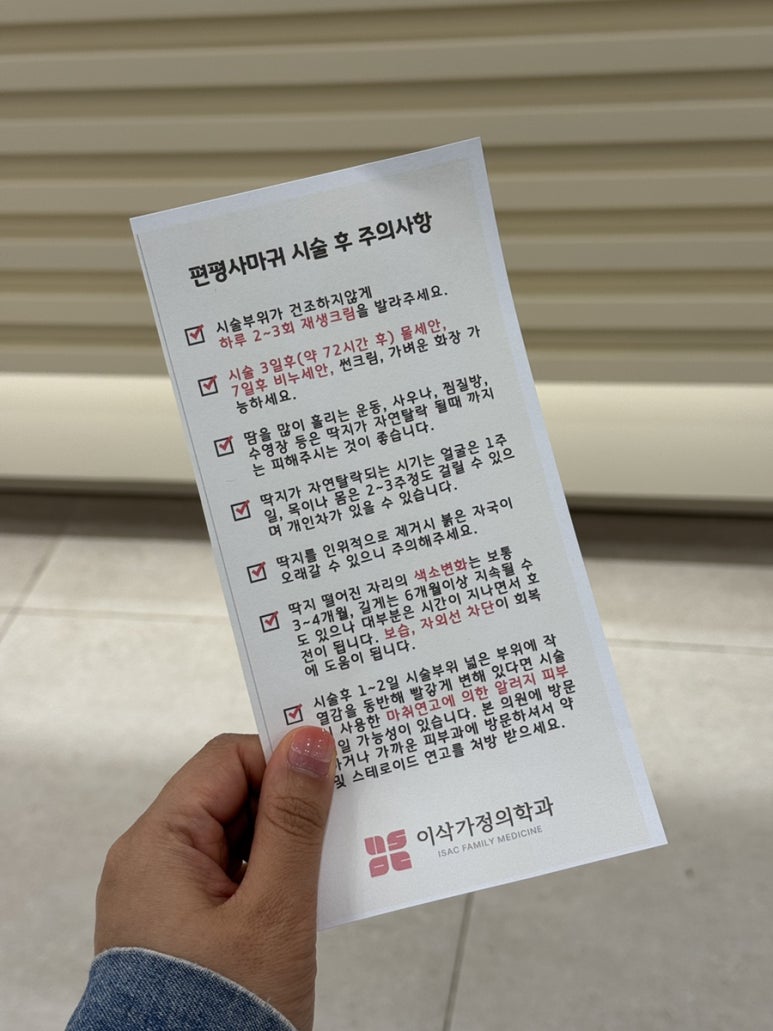 편평사마귀 시술 후 주의사항
시술부위가 건조하지않게
하루 2~3회 재생크림을 발라주세요.
시술 3일후(약 72시간 후) 물세안,
7일후 비누세안, 썬크림, 가벼운 화장 가
능하세요.
땀을 많이 흘리는 운동, 사우나, 찜질방,
수영장 등은 딱지가 자연탈락 될때 까지
는 피해주시는 것이 좋습니다.
딱지가 자연탈락되는 시기는 얼굴은 1주
일, 목이나 몸은 2~3주정도 걸릴 수 있으
며 개인차가 있을 수 있습니다.
딱지를 인위적으로 제거시 붉은 자국이
오래갈 수 있으니 주의해주세요.
딱지 떨어진 자리의 색소변화는 보통
3~4개월, 길게는 6개월이상 지속될 수
도 있으나 대부분은 시간이 지나면서 호
전이 됩니다. 보습, 자외선 차단이 회복
에 도움이 됩니다.
시술후 1~2일 시술부위 넓은 부위에 작
열감을 동반해 빨갛게 변해 있다면 시술
사용한 마취연고에 의한 알러지 피부
일 가능성이 있습니다. 본 의원에 방문
하거나 가까운 피부과에 방문하셔서 약
및 스테로이드 연고를 처방 받으세요.
이삭가정의학과
ISAC FAMILY MEDICINE